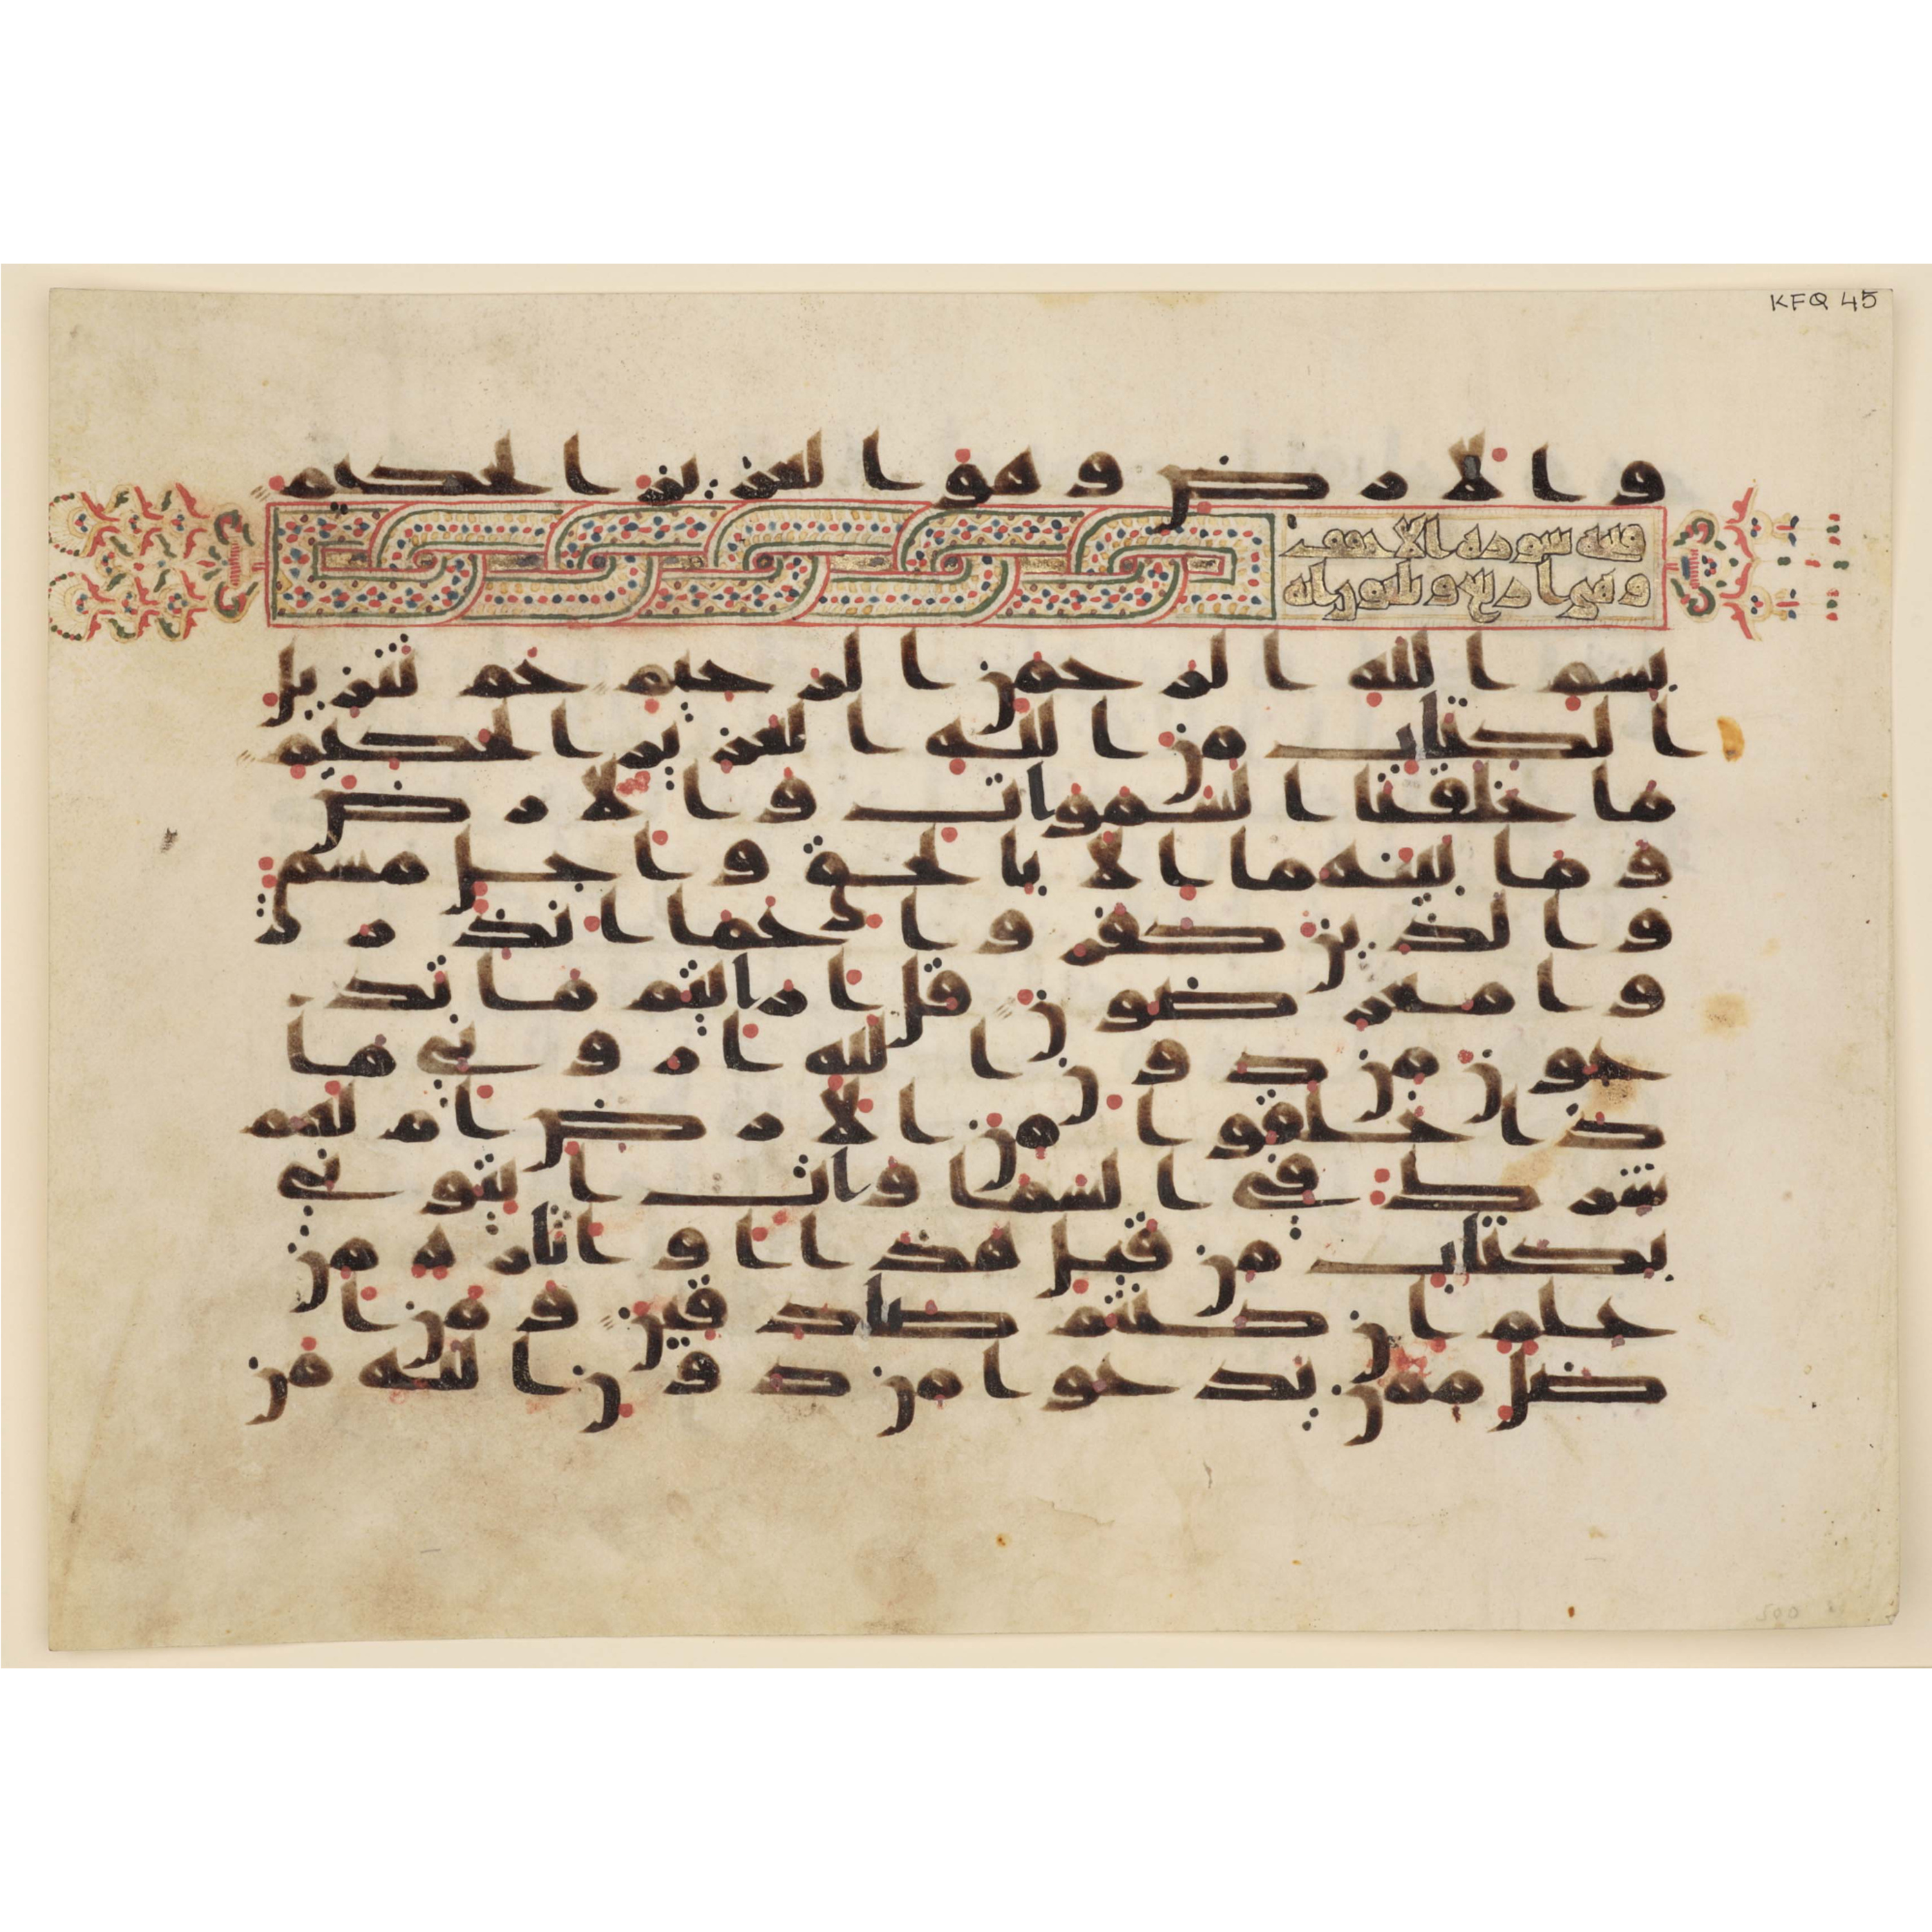 KFQ 45
والارض وهو العزيز الحكيم
فتحه سورة الاحقف
وهي اربع وثلثون اية
بسم الله الرحمن الرحيم حم تنزيل
الكتاب من الله العزيز الحكيم
ما خلقنا السموات والارض
وما بينهما الا بالحق واجل مسمى
والذين كفروا عما انذر
وا معرضون قل ارايتم ما تد
عون من دون الله اروني ما
ذا خلقوا من الارض ام لهم
شرك في السماوات ايتوني
بكتاب من قبل هذا او اثارة من
علم ان كنتم صادقين ومن ا
ضل ممن يدعوا من دون الله من